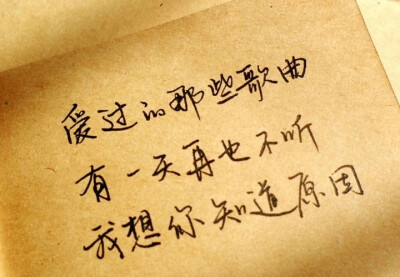 爱过的那些歌曲
有一天再也不听
我想你知道原因